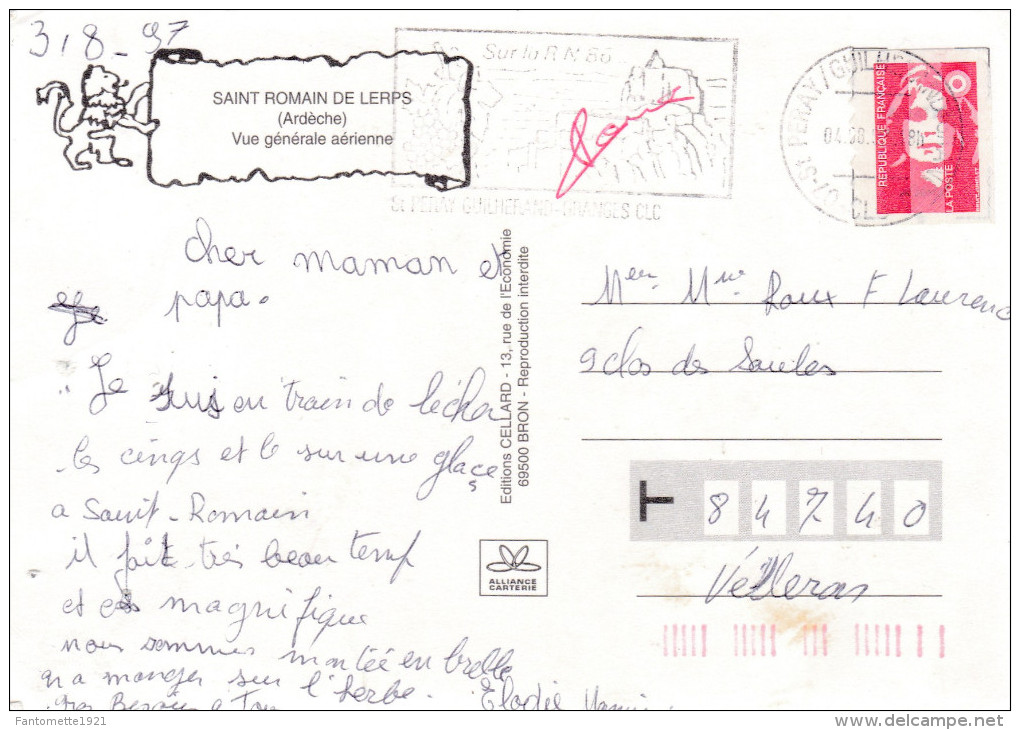 318-97
SAINT ROMAIN DE LERPS
(Ardèche)
Vue générale aérienne
Sur la R N 86
ST PERAY GUILHERAND-GRANGES CLC
07-ST PERAY/GUILHE
RÉPUBLIQUE FRANÇAISE
LA POSTE
cher maman et
papa.
Je suis en train de lécher
les
et
sur une glace
a Sanit-Romain
il fait très beau temp
et
magnifique
nous sommes montée en
on a manger sur l'herbe.
Elodie
Editions CELLARD - 13, rue de l'Economie
69500 BRON - Reproduction interdite
ALLIANCE
CARTERIE
Roux F Laurenc
9 clos des Saules
84740
Velleron
Fantomette1921